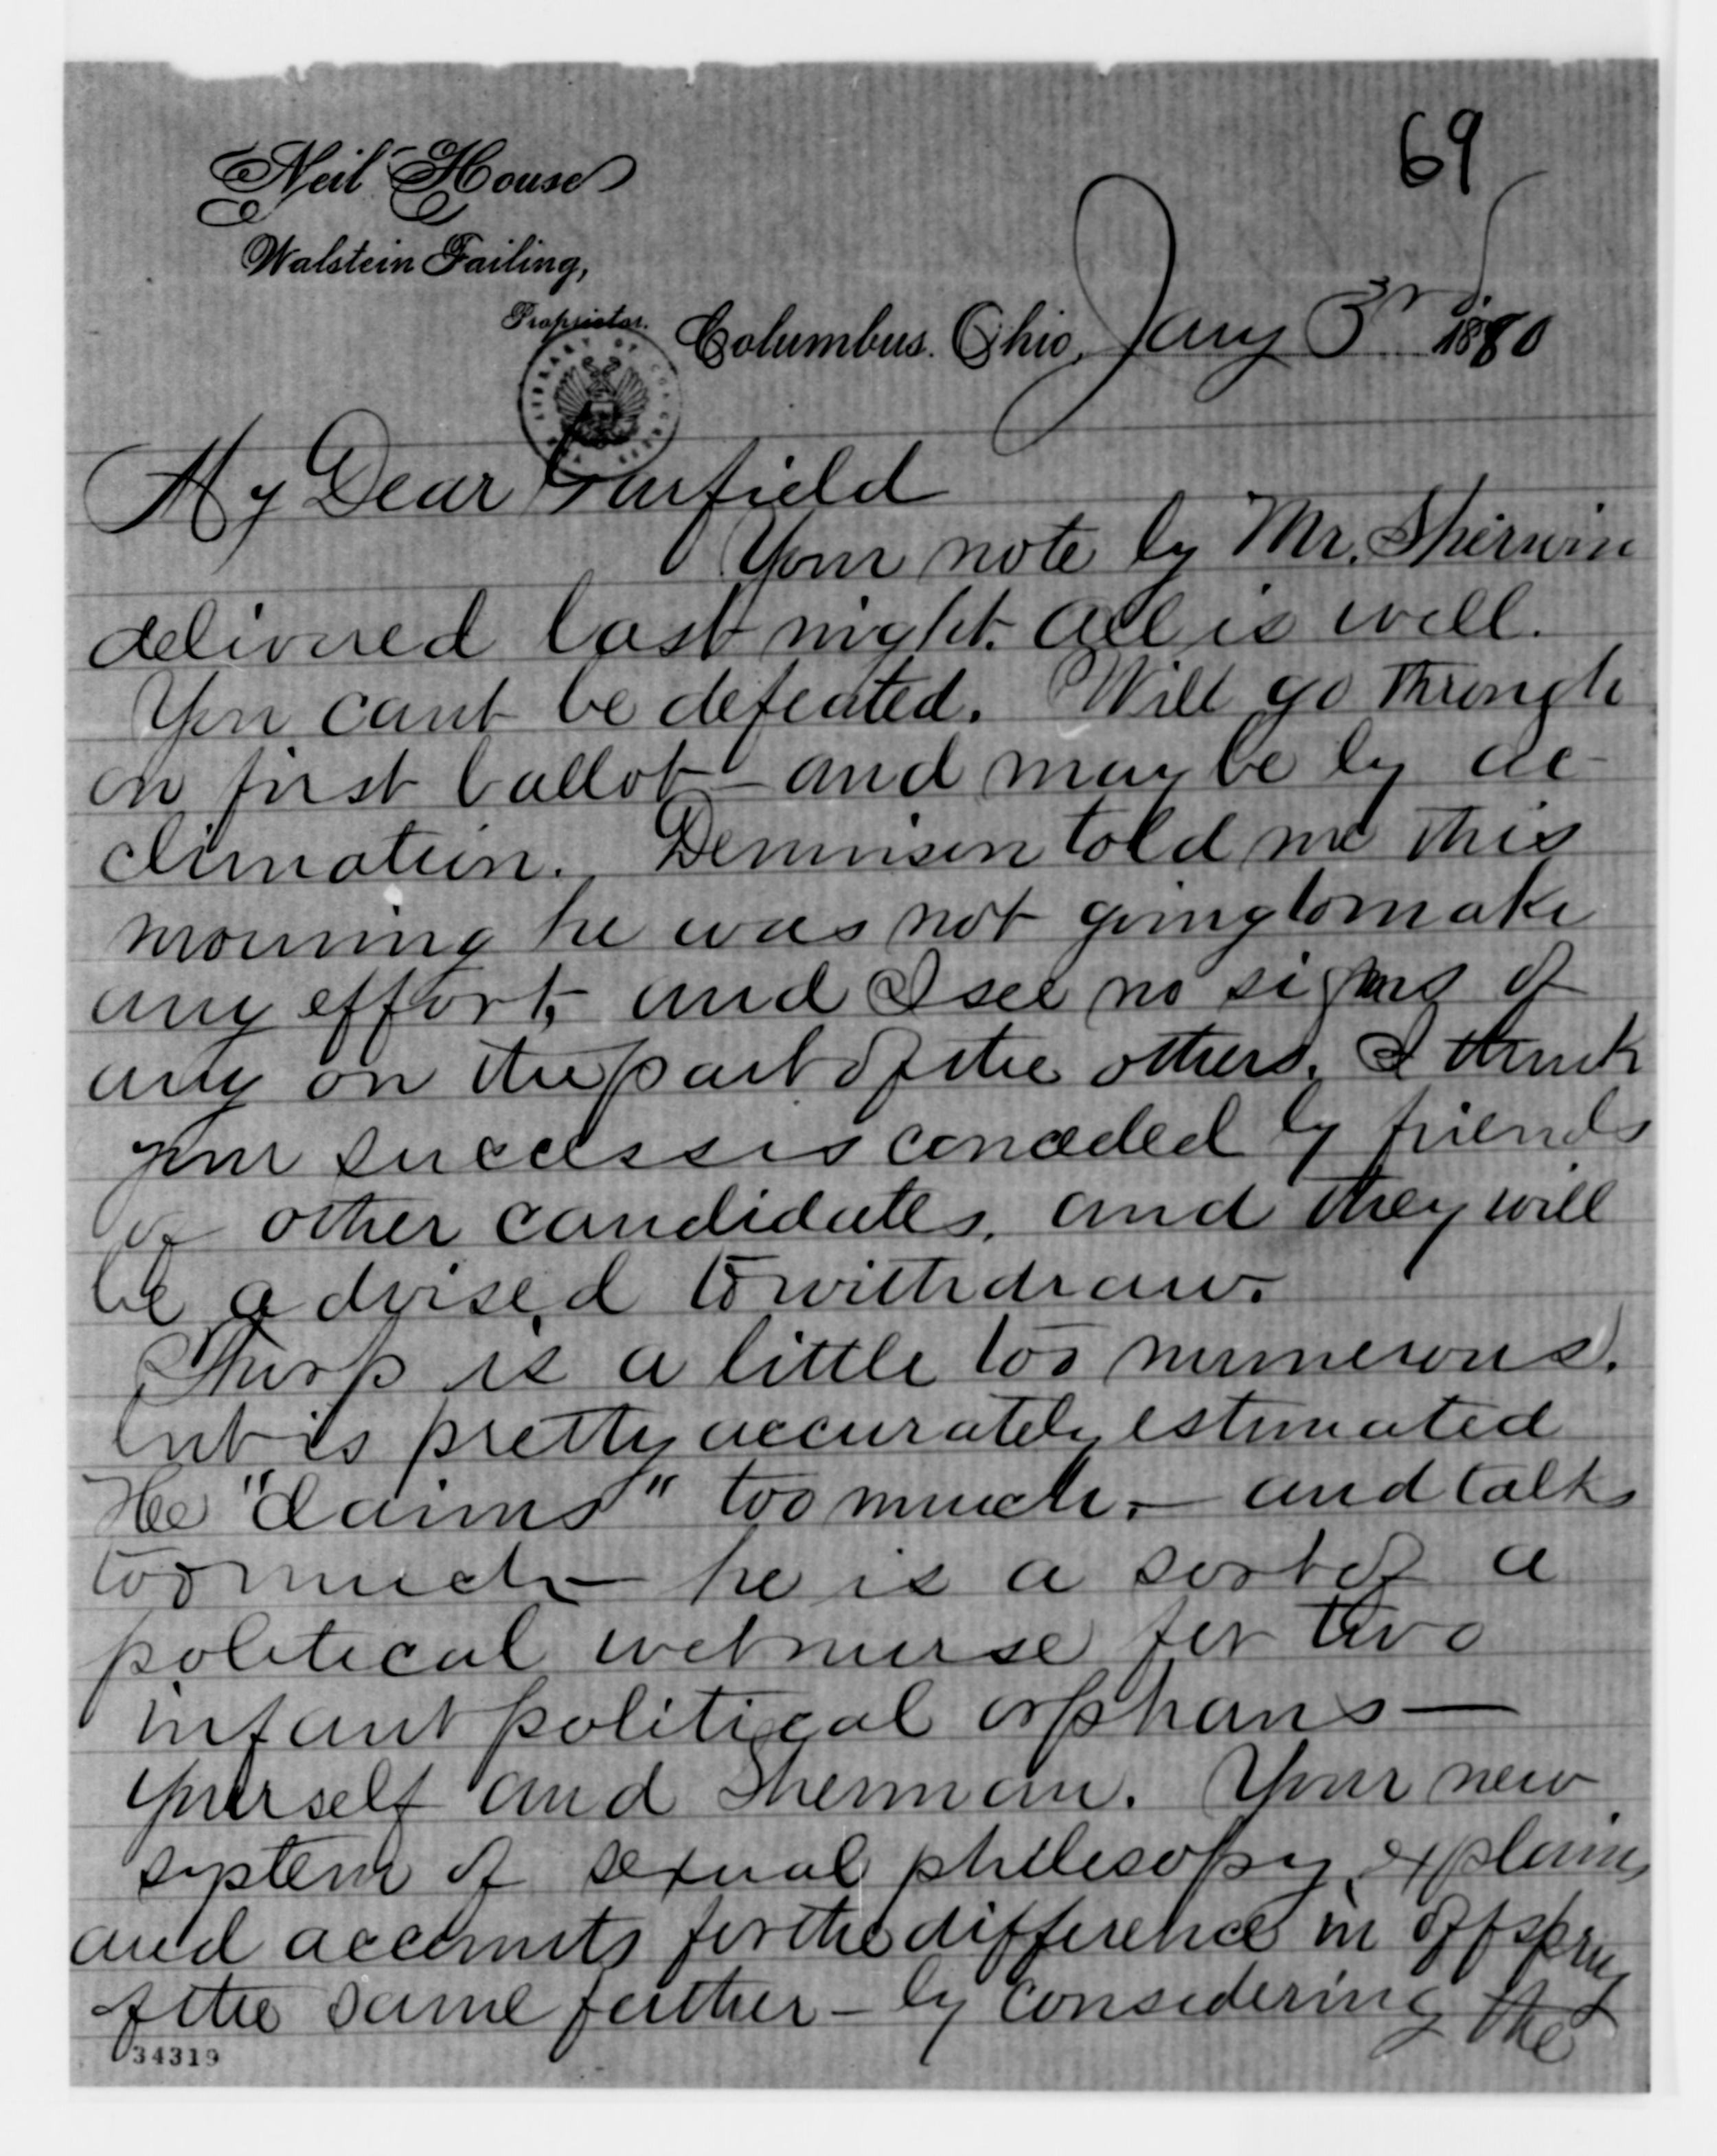 69
Neil House
Walstein Failing,
Proprietor.
Columbus. Ohio, Jany 3rd 1880
LIBRARY OF CONGRESS
My Dear Garfield
Your note by Mr. Sherwin
delivered last night. All is well.
You cant be defeated. Will go through
on first ballot - and may be by ac-
climation. Dennison told me this
morning he was not going to make
any effort, and I see no signs of
any on the part of the others. I think
your success is conceded by friends
of other candidates, and they will
be advised to withdraw.
Thorp is a little too numerous.
but is pretty accurately estimated
He "claims" too much. - and talks
too much - he is a sort of a
political wet nurse for two
infant political orphans —
yourself and Sherman. Your new
system of sexual philosophy, explains
and accounts for the difference in offspring
of the same father - by considering the
34319